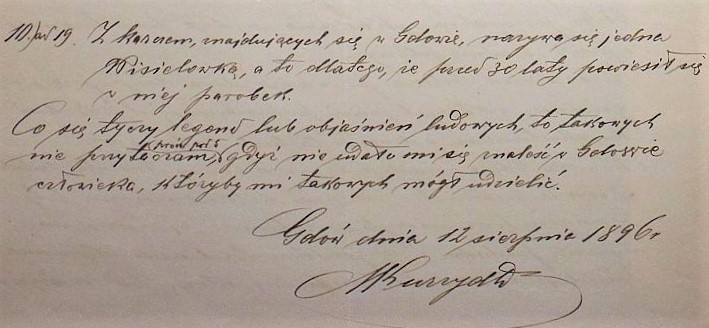 10.) ad 19. Z karczem, znajdujących się w Gdowie, nazywa się jedna
Wisielówką, a to dlatego, że przed 30 laty powiesił się
w niej parobek.
Co się tyczy legend lub objaśnień ludowych, to takowych
nie przytaczam, gdyż nie udało mi się znaleść w Gdowie
człowieka, któryby mi takowych mógł udzielić.
Gdów dnia 12 sierpnia 1896 r